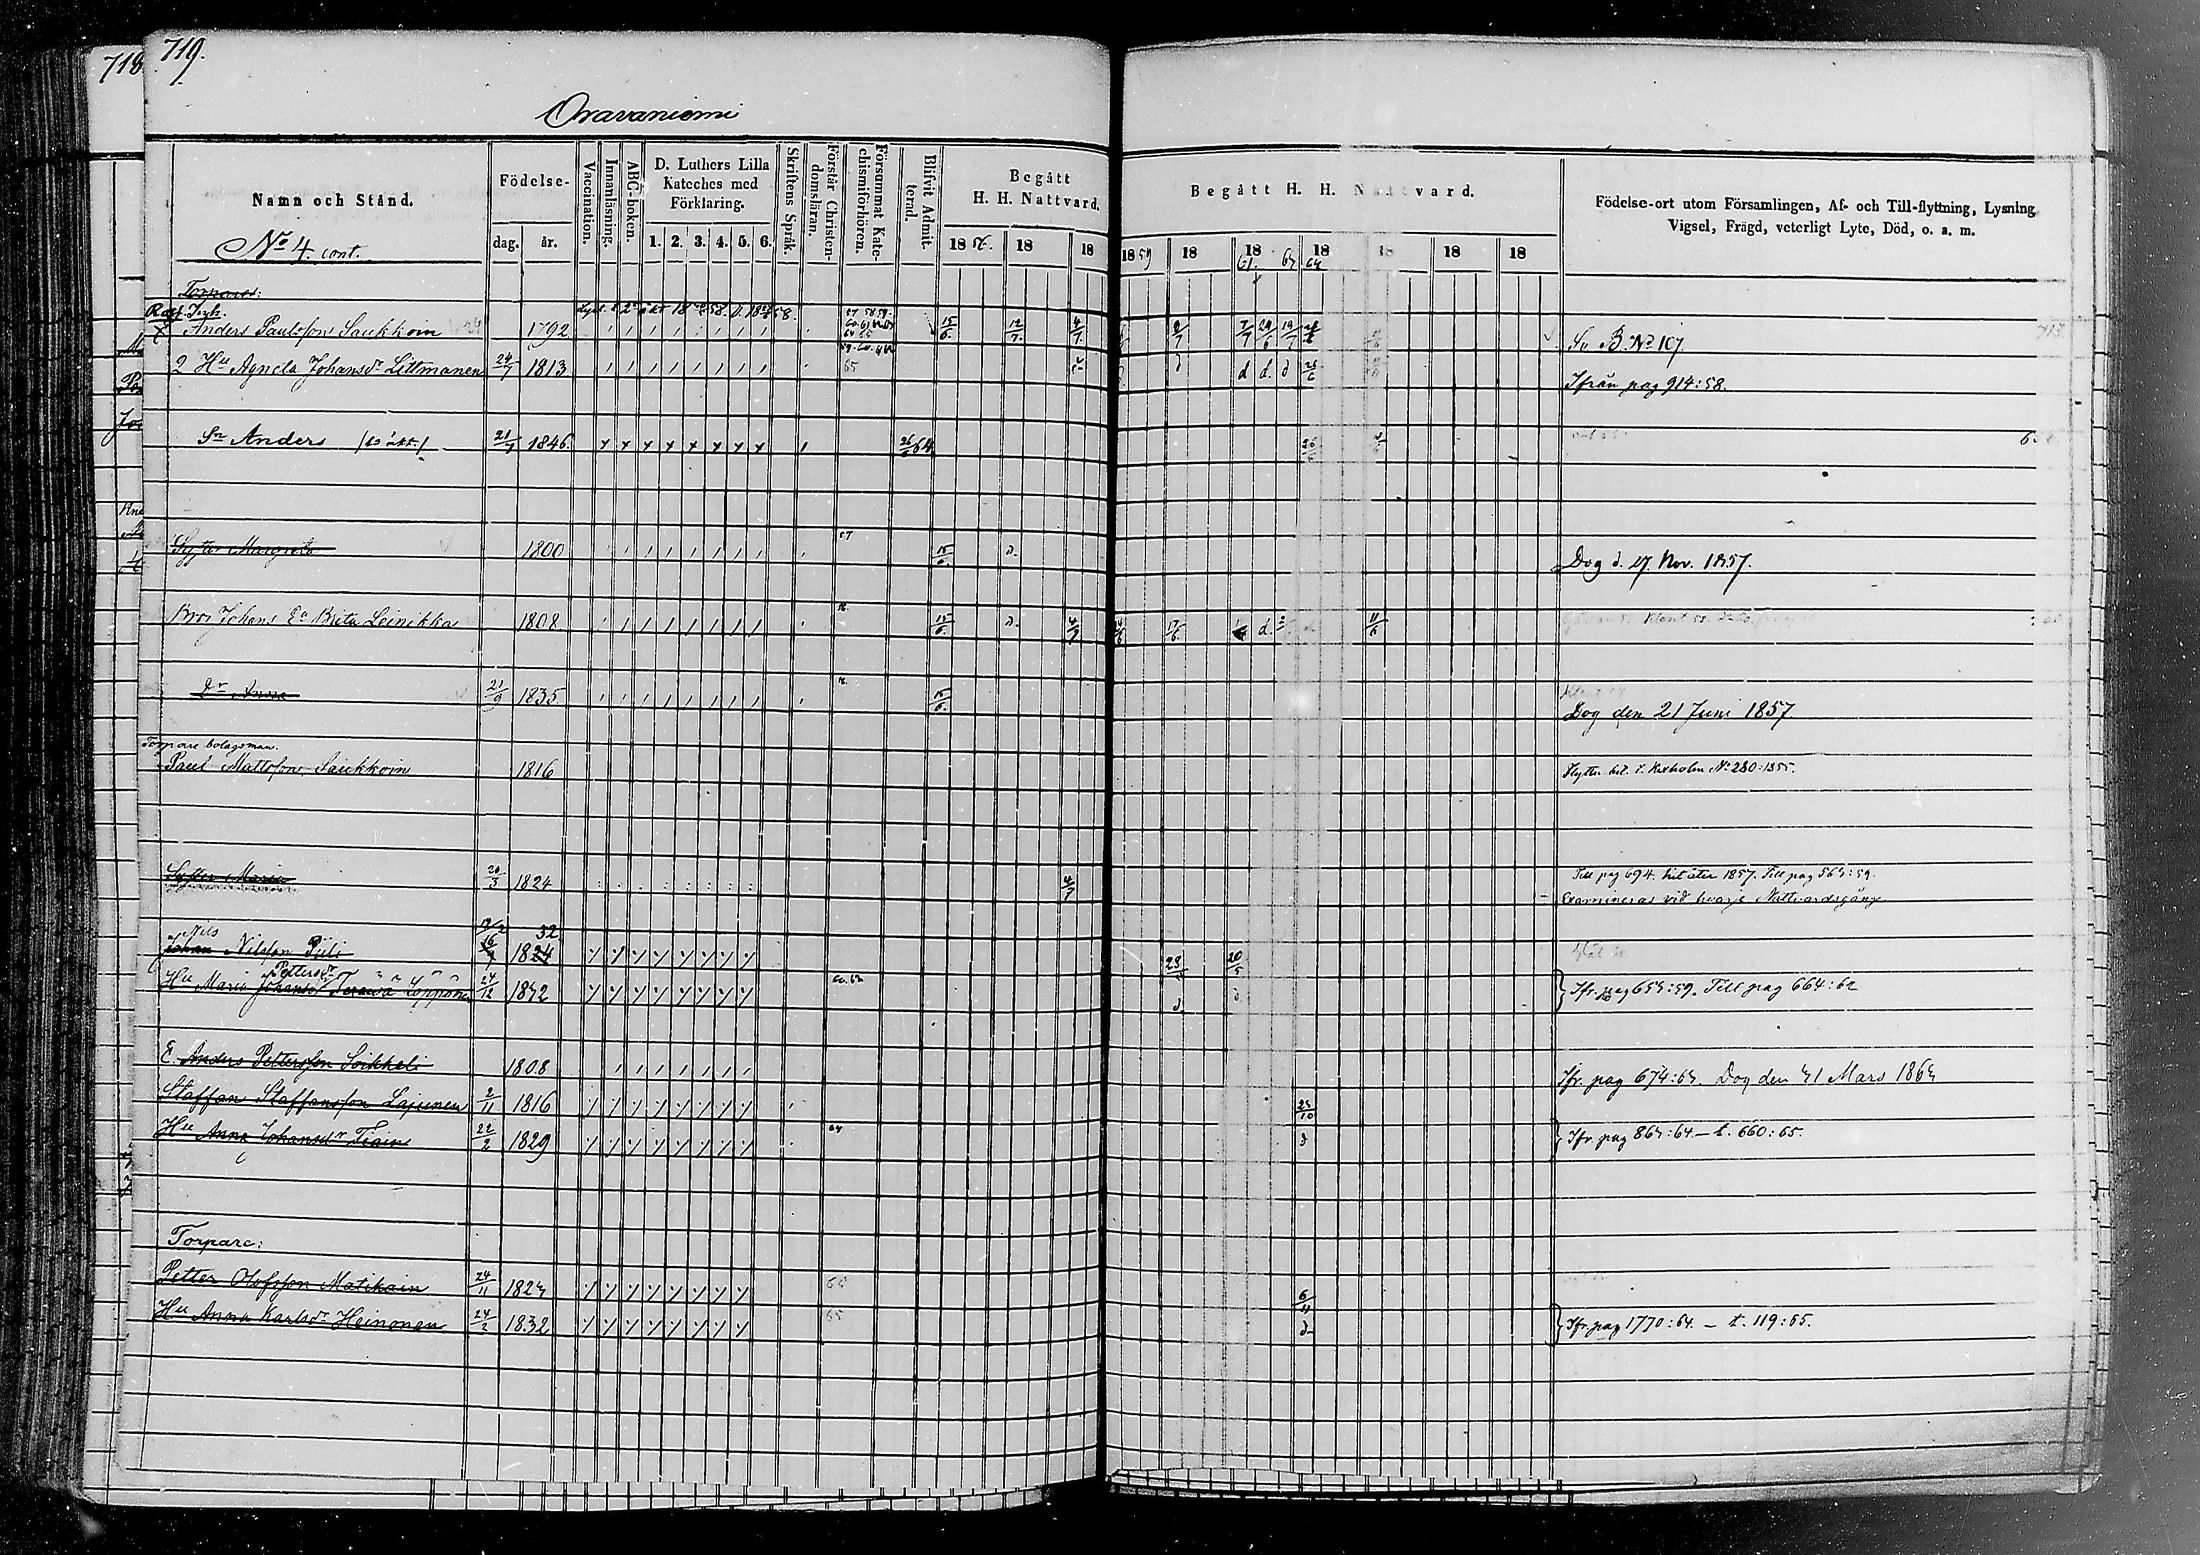 718
719.
Oravaniemi
Namn och Stånd.
No 4. cont.
Födelse-
dag. år.
Vaccination.
Innanläsning.
ABC-boken.
D. Luthers Lilla Kateches med Förklaring.
1. 2. 3. 4. 5. 6.
Skriftens Språk.
Förstår Christendomsläran.
Försummat Katechismiförhören.
Blifvit Admitterad.
Begått H. H. Nattvard.
18 56. 18 18
Begått H. H. Nattvard.
18 59 18 18 61. 63 18 64 18 18 18
Födelse-ort utom Församlingen, Af- och Till-flyttning, Lysning
Vigsel, Frägd, veterligt Lyte, Död, o. a. m.
Torpare:
Anders Paulsson Saukkoin 1792 15/6. 12/7. 4/7. Se B. No 107.
2 Hu Agneta Johansdr Littmanen 24/7 1813 65 d d. d Ifrån pag 914:58.
Sn Anders 21/7 1846. 26/6 64
Syster Margreta 1800 57 15/6. d. Dog d. 27. Nov. 1857.
Bror Johans Ea Brita Leinikka 1808 15/6. d. 4/7 17/6. d. 11/6
Dr Anna 21/9 1835 15/6. Dog den 21 Juni 1857.
Torpare bolagsman.
Paul Mattsson Saukkoin 1816 Flytta bet. t. Kexholm No 280:1855.
Syster Maria 20/3 1824 4/7 Till pag 694. hit åter 1857. Till pag 563:59.
Examineras vid hvarje Nattvardsgång
Nils 32
Johan Nilsson Piili 1824 20/5
Pettersdr
Hu Maria Johansdr Teräwä Löppönen 24/12 1832 d. Ifr. pag 653:59. Till pag 664:62
E. Anders Pettersson Soikkeli 1808 Ifr. pag 674:63. Dog den 31 Mars 1863
Staffan Staffansson Lajunen 2/11 1816 23/10
Hu Anna Johansdr Tiain 22/2 1829 64 d Ifr. pag 863:64. – t. 660:65.
Torpare:
Petter Olofsson Matikain 24/11 1823 65 6/11
Hu Anna Karlsdr Heinonen 24/2 1832 65 d Ifr. pag 1770:64. – t. 119:65.